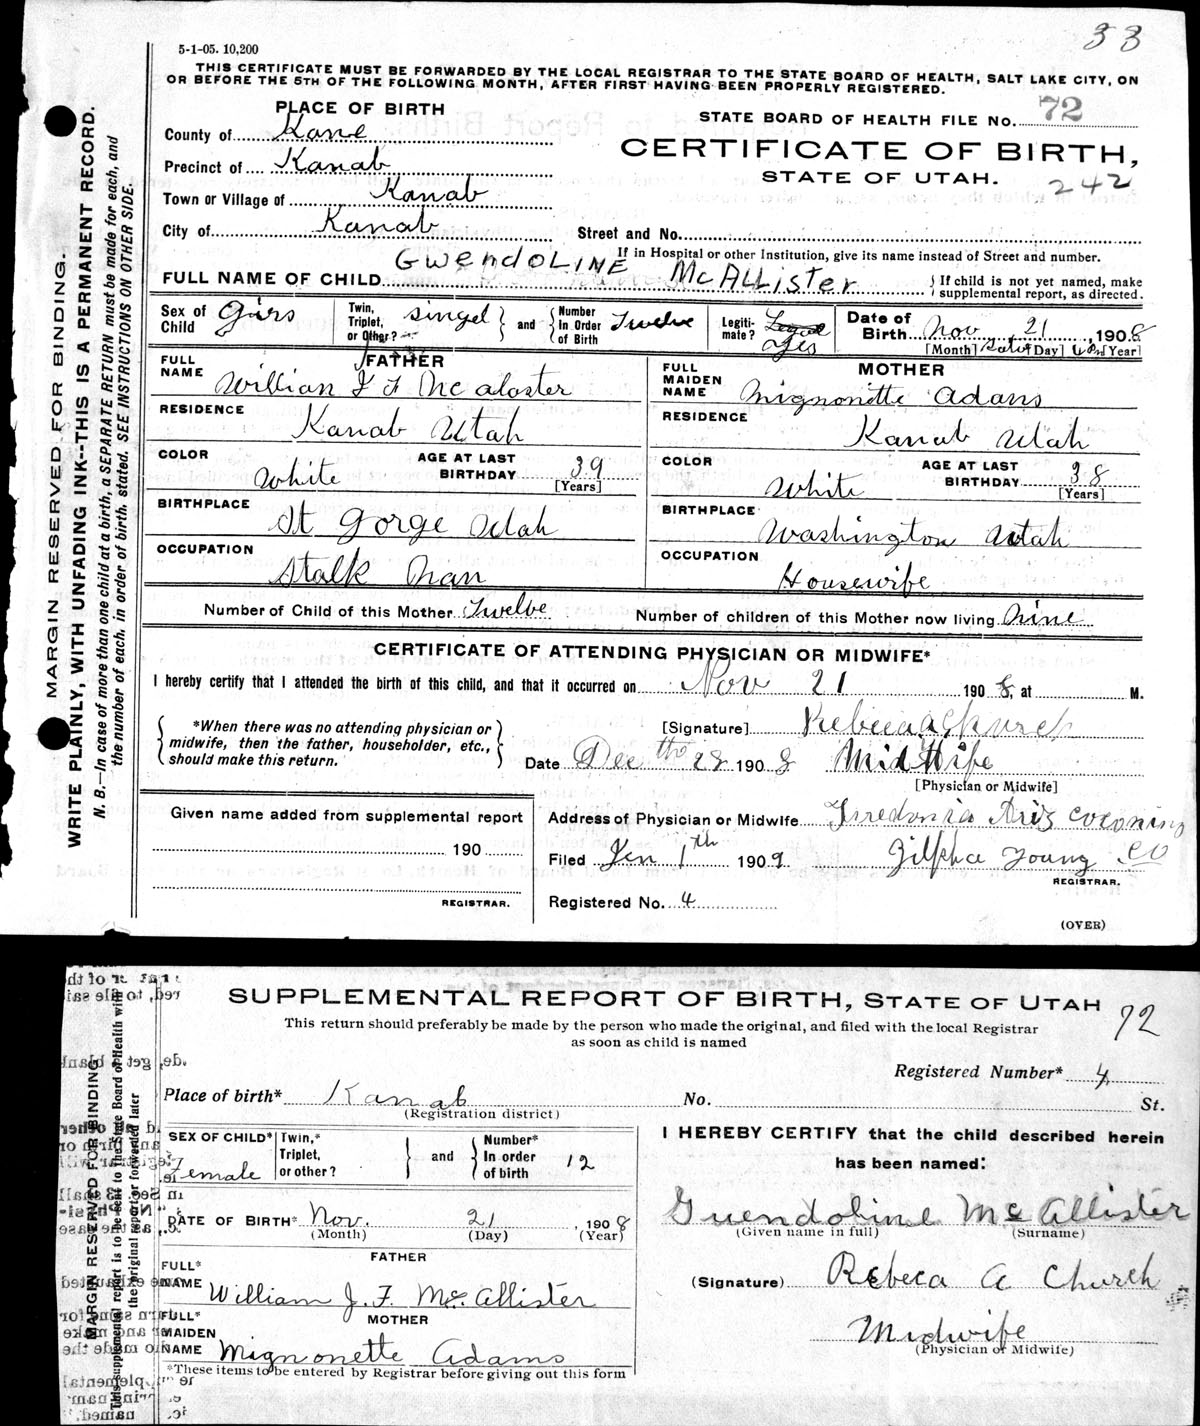 33
5-1-05. 10,200
THIS CERTIFICATE MUST BE FORWARDED BY THE LOCAL REGISTRAR TO THE STATE BOARD OF HEALTH, SALT LAKE CITY, ON
OR BEFORE THE 5TH OF THE FOLLOWING MONTH, AFTER FIRST HAVING BEEN PROPERLY REGISTERED.
PLACE OF BIRTH
STATE BOARD OF HEALTH FILE No. 72
County of Kane
CERTIFICATE OF BIRTH,
Precinct of Kanab
STATE OF UTAH.
242
Town or Village of Kanab
City of Kanab
Street and No.
If in Hospital or other Institution, give its name instead of Street and number.
FULL NAME OF CHILD GWENDOLINE McALLister
If child is not yet named, make
supplemental report, as directed.
Sex of Child Girs
Twin, Triplet, or Other? singel
and
Number In Order of Birth Twelve
Legiti-mate? Yes
Date of Birth Nov 21, 1908
[Month] [Day] [Year]
FATHER
FULL NAME Willian J F Mcalaster
RESIDENCE Kanab Utah
COLOR White
AGE AT LAST BIRTHDAY 39
[Years]
BIRTHPLACE St Gorge Utah
OCCUPATION Stalk Man
MOTHER
FULL MAIDEN NAME Mignonitte Adans
RESIDENCE Kanab Utah
COLOR White
AGE AT LAST BIRTHDAY 38
[Years]
BIRTHPLACE Washington Utah
OCCUPATION Housewife
Number of Child of this Mother Twelve
Number of children of this Mother now living nine
CERTIFICATE OF ATTENDING PHYSICIAN OR MIDWIFE*
I hereby certify that I attended the birth of this child, and that it occurred on Nov 21 1908, at M.
*When there was no attending physician or
midwife, then the father, householder, etc.,
should make this return.
[Signature] Rebeca A Church
Date Dec th 28 1908 MidWife
[Physician or Midwife]
Given name added from supplemental report
190
REGISTRAR.
Address of Physician or Midwife Fredonia Ariz Coconino Co
Filed Jen 1th 1909 Zilpha Young
REGISTRAR.
Registered No. 4
(OVER)
MARGIN RESERVED FOR BINDING.
WRITE PLAINLY, WITH UNFADING INK--THIS IS A PERMANENT RECORD.
N. B.—In case of more than one child at a birth, a SEPARATE RETURN must be made for each, and
the number of each, in order of birth, stated. SEE INSTRUCTIONS ON OTHER SIDE.
SUPPLEMENTAL REPORT OF BIRTH, STATE OF UTAH
72
This return should preferably be made by the person who made the original, and filed with the local Registrar
as soon as child is named
Registered Number* 4
Place of birth* Kanab No. St.
(Registration district)
SEX OF CHILD* Female
Twin,* Triplet, or other?
and
Number* In order of birth 12
DATE OF BIRTH* Nov. 21, 1908
(Month) (Day) (Year)
FATHER
FULL* NAME William J. F. McAllister
MOTHER
FULL* MAIDEN NAME Mignonette Adams
*These items to be entered by Registrar before giving out this form
I HEREBY CERTIFY that the child described herein
has been named:
Guendoline McAllister
(Given name in full) (Surname)
(Signature) Rebeca A Church
Midwife
(Physician or Midwife)
MARGIN RESERVED FOR BINDING
This supplemental report is to be sent to the State Board of Health with
the original report or forwarded later